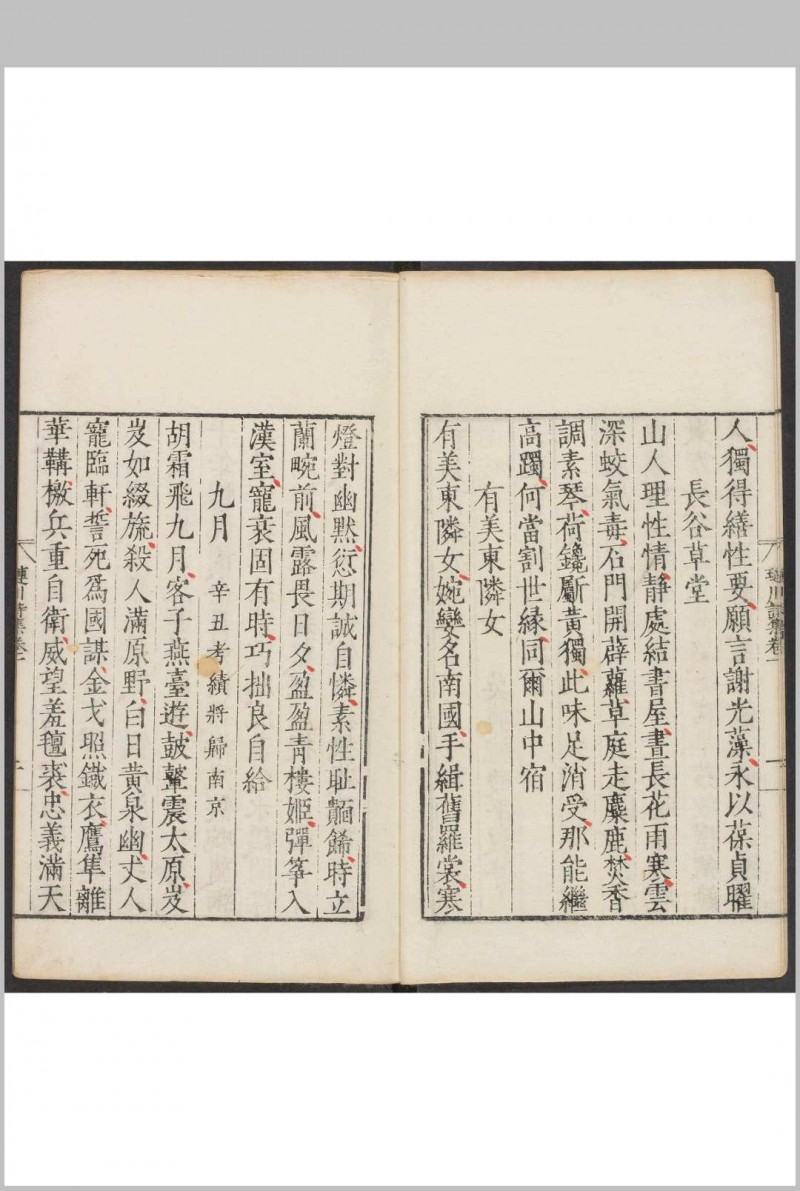 人獨得繕性要願言謝光藻永以葆貞曜
長谷草堂
山人理性情靜處結書屋晝長花雨寒雲
深蛟氣毒石門開薜蘿草庭走麋鹿焚香
調素琴荷鑱斸黃獨此味足消受那能繼
高躅何當割世緣同爾山中宿
有美東隣女
有美東隣女婉孌名南國手緝舊羅裳寒
燈對幽默愆期誠自憐素性恥靦餙時立
蘭畹前風露畏日夕盈盈青樓姬彈箏入
漢室寵衰固有時巧拙良自給
九月 辛丑考績將歸南京
胡霜飛九月客子燕臺遊鼓鼙震太原岌
岌如綴旒殺人滿原野白日黃泉幽丈人
寵臨軒誓死爲國謀金戈照鐵衣鷹隼離
華韝檄兵重自衛威望羞氊裘忠義滿天
川詩集卷一